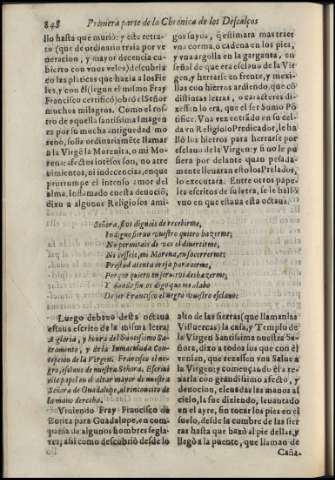 848 Primera parte de la Chronica de los Descalços
llo hasta que murió: y este retra-
to (que de ordinario traìa por ve
neracion, y mayor decencia cu-
bierto con vnos velos) descubrir
en las platicas que hazia a los Fie
les, y con èl (segun el mismo Fray
Francisco certifico) obró el Señor
muchos milagros. Como el ros-
tro de aquella santissima Imagen
es por su mucha antiguedad mo
reno, solia ordinariamēte llamar
a la Virgē la Morenita, o mi Mo-
rena: afectos intēsos son, no atre
uimientos, ni indecencias, en que
prorrumpe el intenso amor del
alma. Inflamado en esta deuociō,
dixo a algunos Religiosos ami-
gos suyos, q̄ estimara mas traer
vna corma, o cadena en los pies,
y vna argolla en la garganta, en
señal de que era esclauo de la Vir
gen, y herrarse en frente, y mexi-
llas con hierros ardiendo, que cō
distintas letras, o caracteres di-
xessen lo era, que el ser Sumo Pō-
tifice. Vna vez entrado en su cel-
da vn Religioso Predicador, le ha
lló los hierros para herrarse por
esclauo de la Virgen: y si no le pu
siera por delante quan pesada-
mente lleuaran esto los Prelados,
lo executara. Entre otros pape-
les escritos de su letra, se le hallò
vno en que estaua esta octaua.
Señora, si os dignais de recebirme,
Indigno sieruo vuestro quiero hazerme;
No permitais de vos el diuertirme,
No cesseis, mi Morena, en socorrerme;
Prestad atenta oreja para oirme,
Por que quiero en seruiros deshazerme,
Y dando fin os digo que me alabo
De ser Francisco el negro vuestro esclauo.
Luego debaxo desta octaua
estaua escrito de la misma letra:
A gloria, y honra del Santissimo Sa-
cramento, y de la Inmaculada Con-
cepcion de la Virgen, Francisco el ne-
gro, esclauo de nuestra Señora. Escriui
este papel en el altar mayor de nuestra
Señora de Guadalupe, al rinconcito de
la mano derecha.
Viniendo Fray Francisco de
Borita para Guadalupe, en com-
pañia de algunos hombres segla-
res, assi como descubriò desde lo
alto de las sierras (que llaman las
Villuercas) la casa, y Templo de
la Virgen Santissima nuestra Se-
ñora, dixo a todos los que con èl
venian, que rezassen vna Salue a
la Virgen; y començādo èl a re-
zarla con grandissimo afecto, y
deuocion, eleuadas las manos al
cielo, la fue diziendo, leuantado
en el ayre, sin tocar los pies en el
suelo, desde la cumbre de las sier
ras hasta que baxó al pie dellas, y
llegò a la puente, que llaman de
Caña.